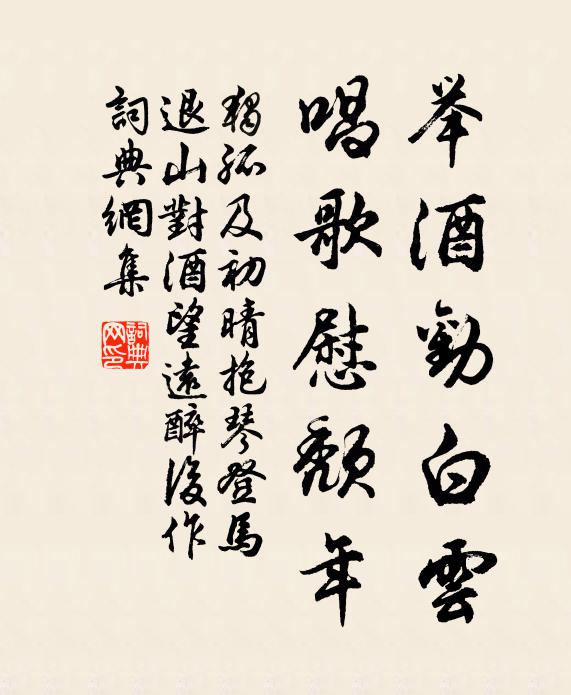 举酒勸白雲
唱歌慰頹年
獨孤及初晴抱琴登馬
退山對酒望遠醉後作
詞典網集
詞典
网印